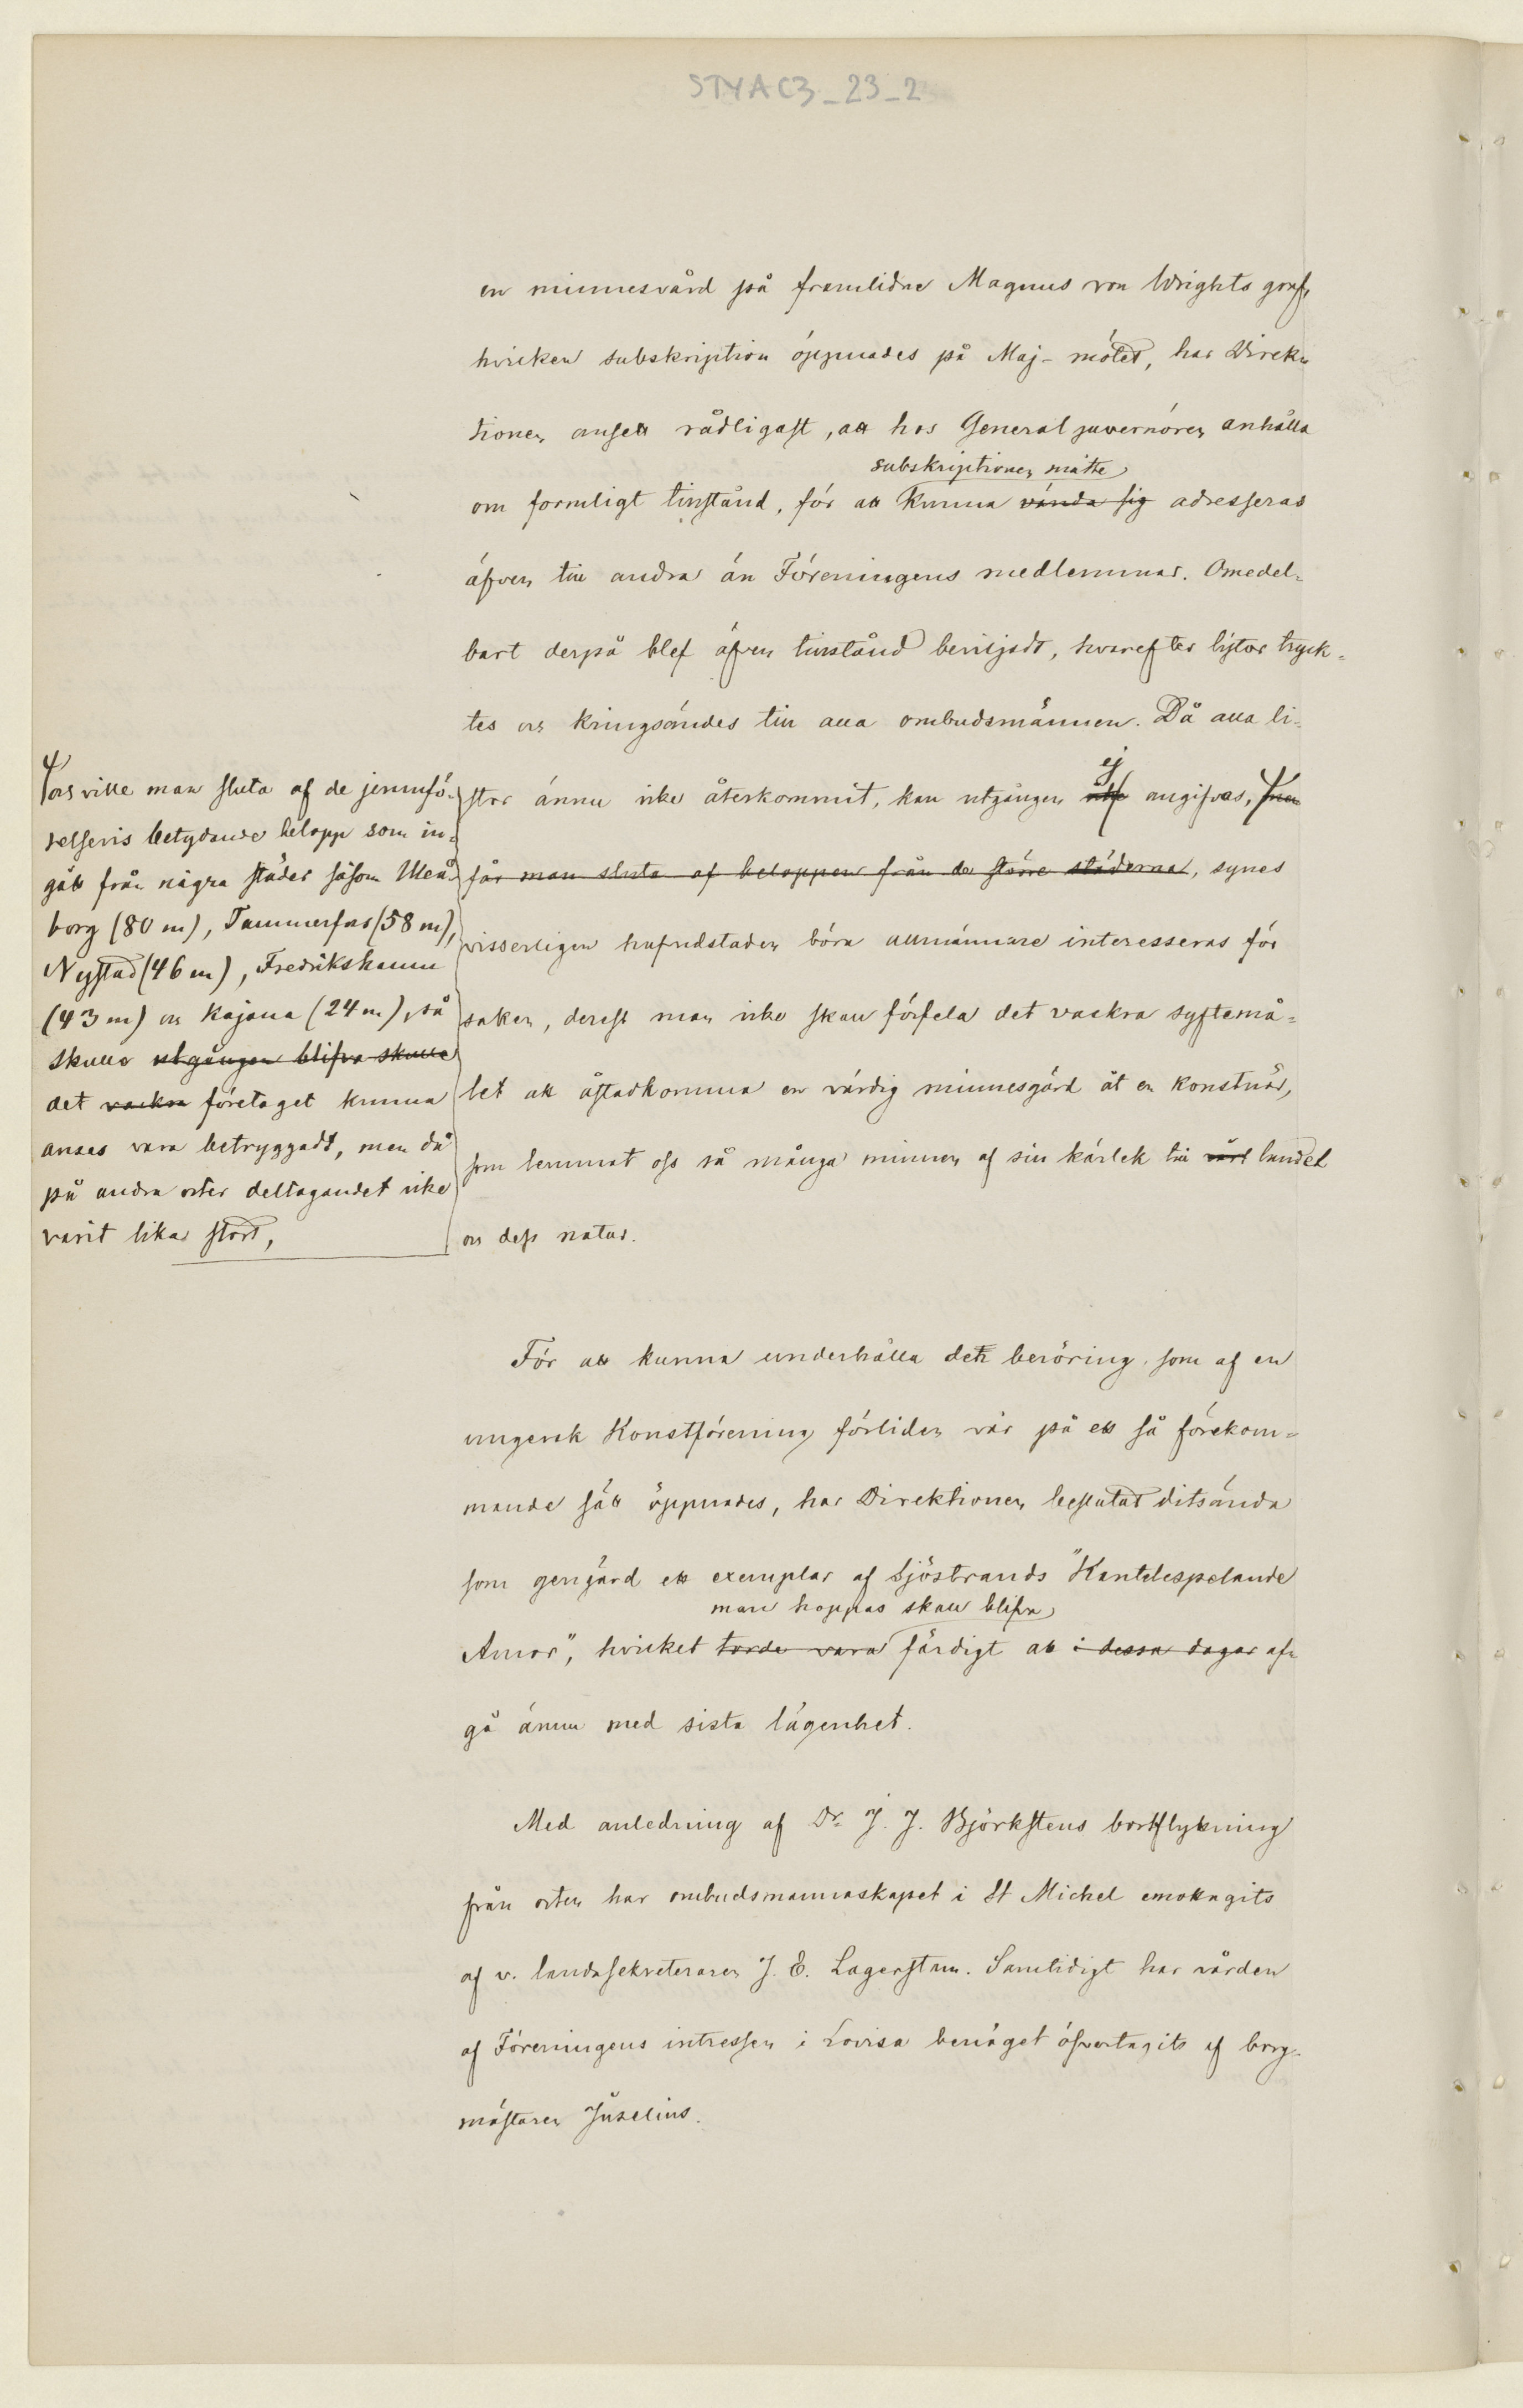 STYAC3_23_2
en minnesvård på framlidne Magnus von Wrights graf,
hvilken subskription öppnades på Maj-mötet, har Direk-
tionen ansett rådligast, att hos Generalguvernören anhålla
subskriptionen måtte
om formligt tillstånd, för att kunna vända sig adresseras
äfven till andra än Föreningens medlemmar. Omedel-
bart derpå blef äfven tillstånd beviljadt, hvarefter listor tryck-
tes och kringsändes till alla ombudsmännen. Då alla li-
ej
stor ännu icke återkommit, kan utgången angifvas, men
får man sluta af beloppen från de större städerna, synes
visserligen hufvudstaden böra allmännare interesseras för
saken, derest man icke skall förfela det vackra syftemå-
let att åstadkomma en värdig minnesgärd åt en konstnär,
som lemnat oss så många minnen af sin kärlek till vårt landet
och dess natur.
och ville man sluta af de jemnfö-
relsevis betydande belopp som in-
gått från några städer såsom Uleå-
borg (80 m), Tammerfors (58 m),
Nystad (46 m), Fredrikshamn
(43 m) och Kajana (24 m), så
skulle utgången blifva skulle
det vackra företaget kunna
anses vara betryggadt, men då
på andra orter deltagandet icke
varit lika stort,
För att kunna underhålla den beröring, som af en
ungersk Konstförening förliden vår på ett så förekom-
mande sätt öppnades, har Direktionen beslutat ditsända
som gengärd ett exemplar af Sjöstrands "Kantelespelande
man hoppas skall blifva
Amor", hvilket torde vara färdigt att i dessa dagar af-
gå ännu med sista lägenhet.
Med anledning af Dr. J. J. Björkstens bortflyttning
från orten har ombudsmannaskapet i St Michel emottagits
af v. landssekreteraren J. E. Lagerstam. Samtidigt har vården
af Föreningens intressen i Lovisa benäget öfvertagits af borg-
mästaren Juselius.